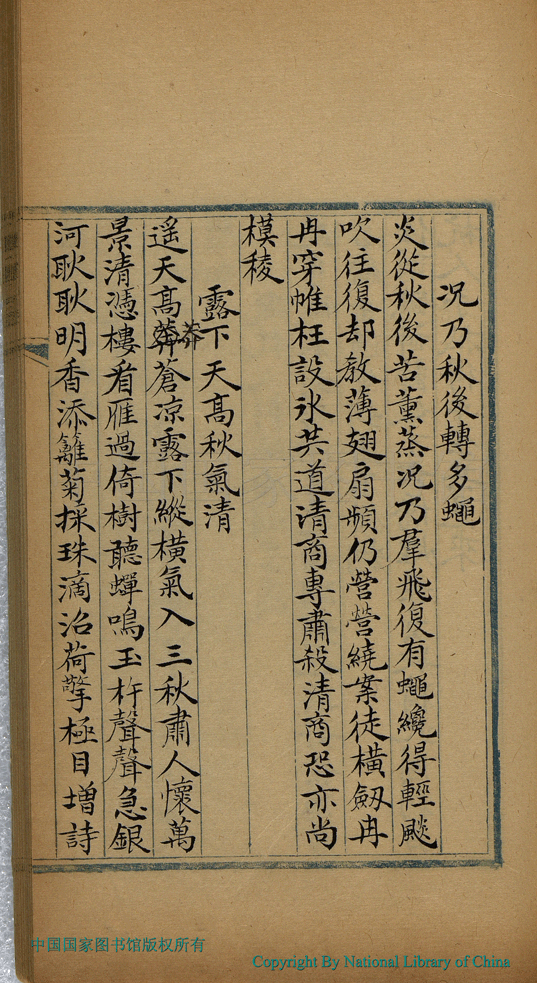 况乃秋後轉多蠅
炎從秋後苦薰蒸况乃羣飛復有蠅纔得輕颸
吹往復却教薄翅扇頻仍營營繞案徒橫劒冉
冉穿帷枉設氷共道清商專肅殺清商恐亦尚
模稜
露下天髙秋氣清
遥天髙莽莽蒼凉露下縱橫氣入三秋肅人懷萬
景清憑樓看雁過倚樹聽蟬鳴玉杵聲聲急銀
河耿耿明香添籬菊採珠滴沼荷擎極目増詩
中国国家图书馆版权所有
Copyright By National Library of China